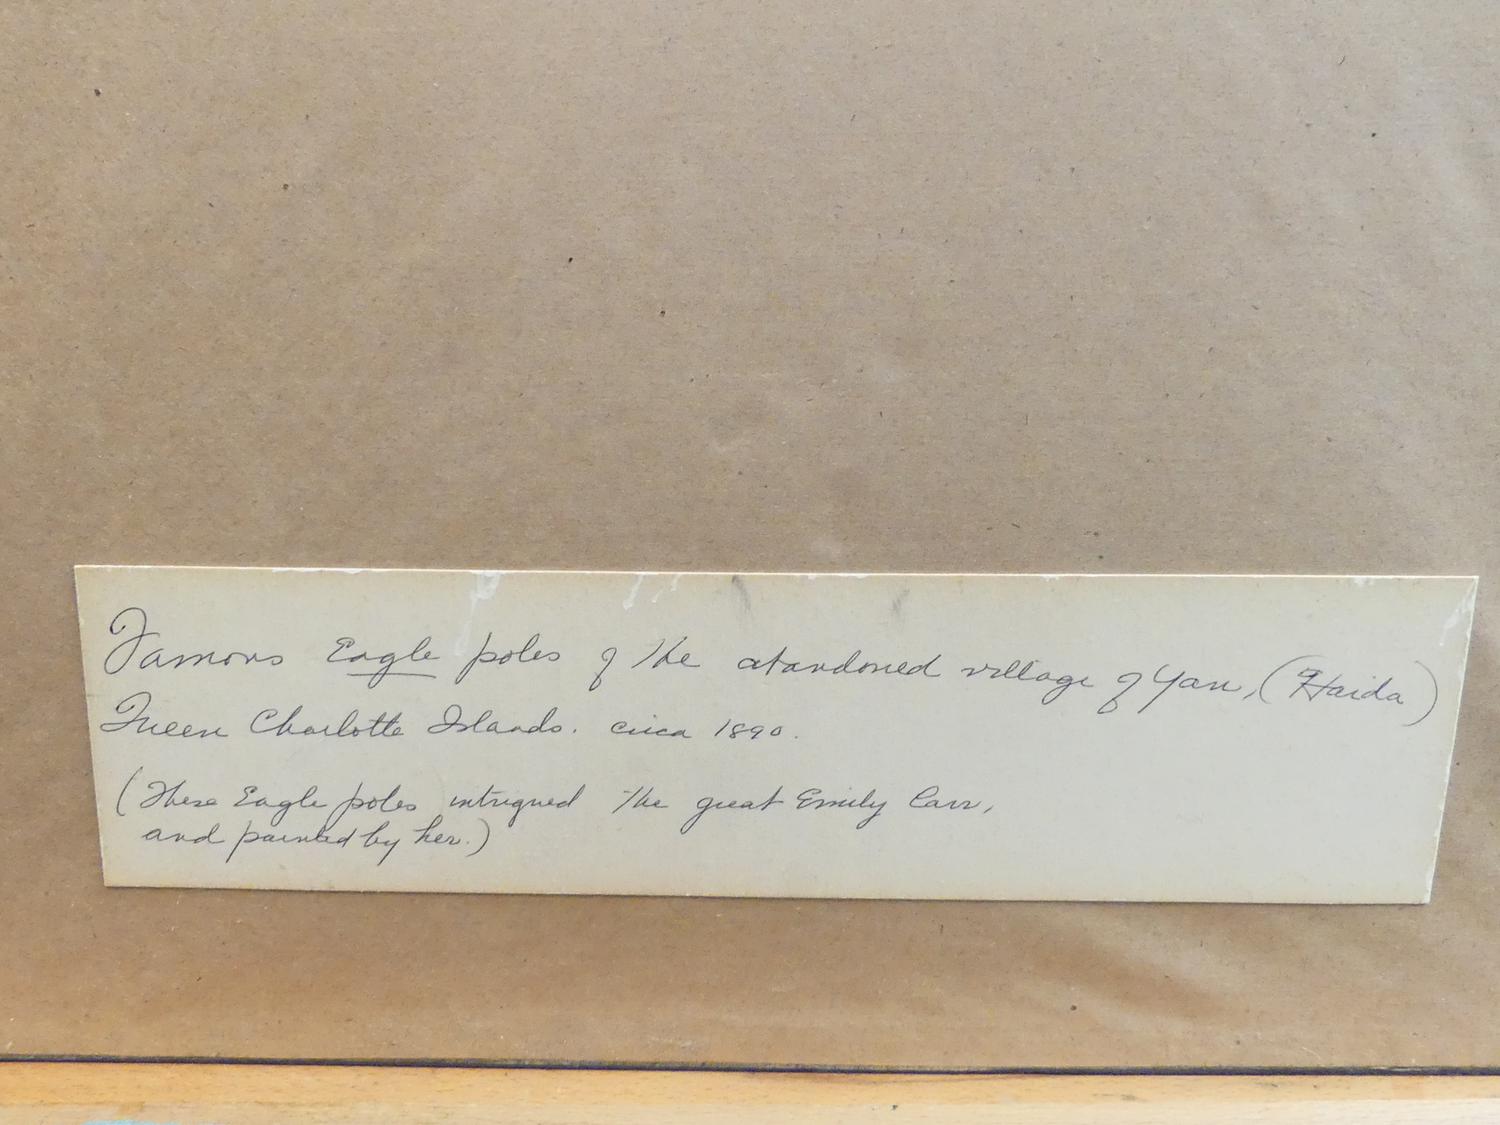 Famous Eagle poles of the abandoned village of Yan, (Haida)
Queen Charlotte Islands. circa 1890.
(These Eagle poles intrigued the great Emily Carr,
and painted by her.)